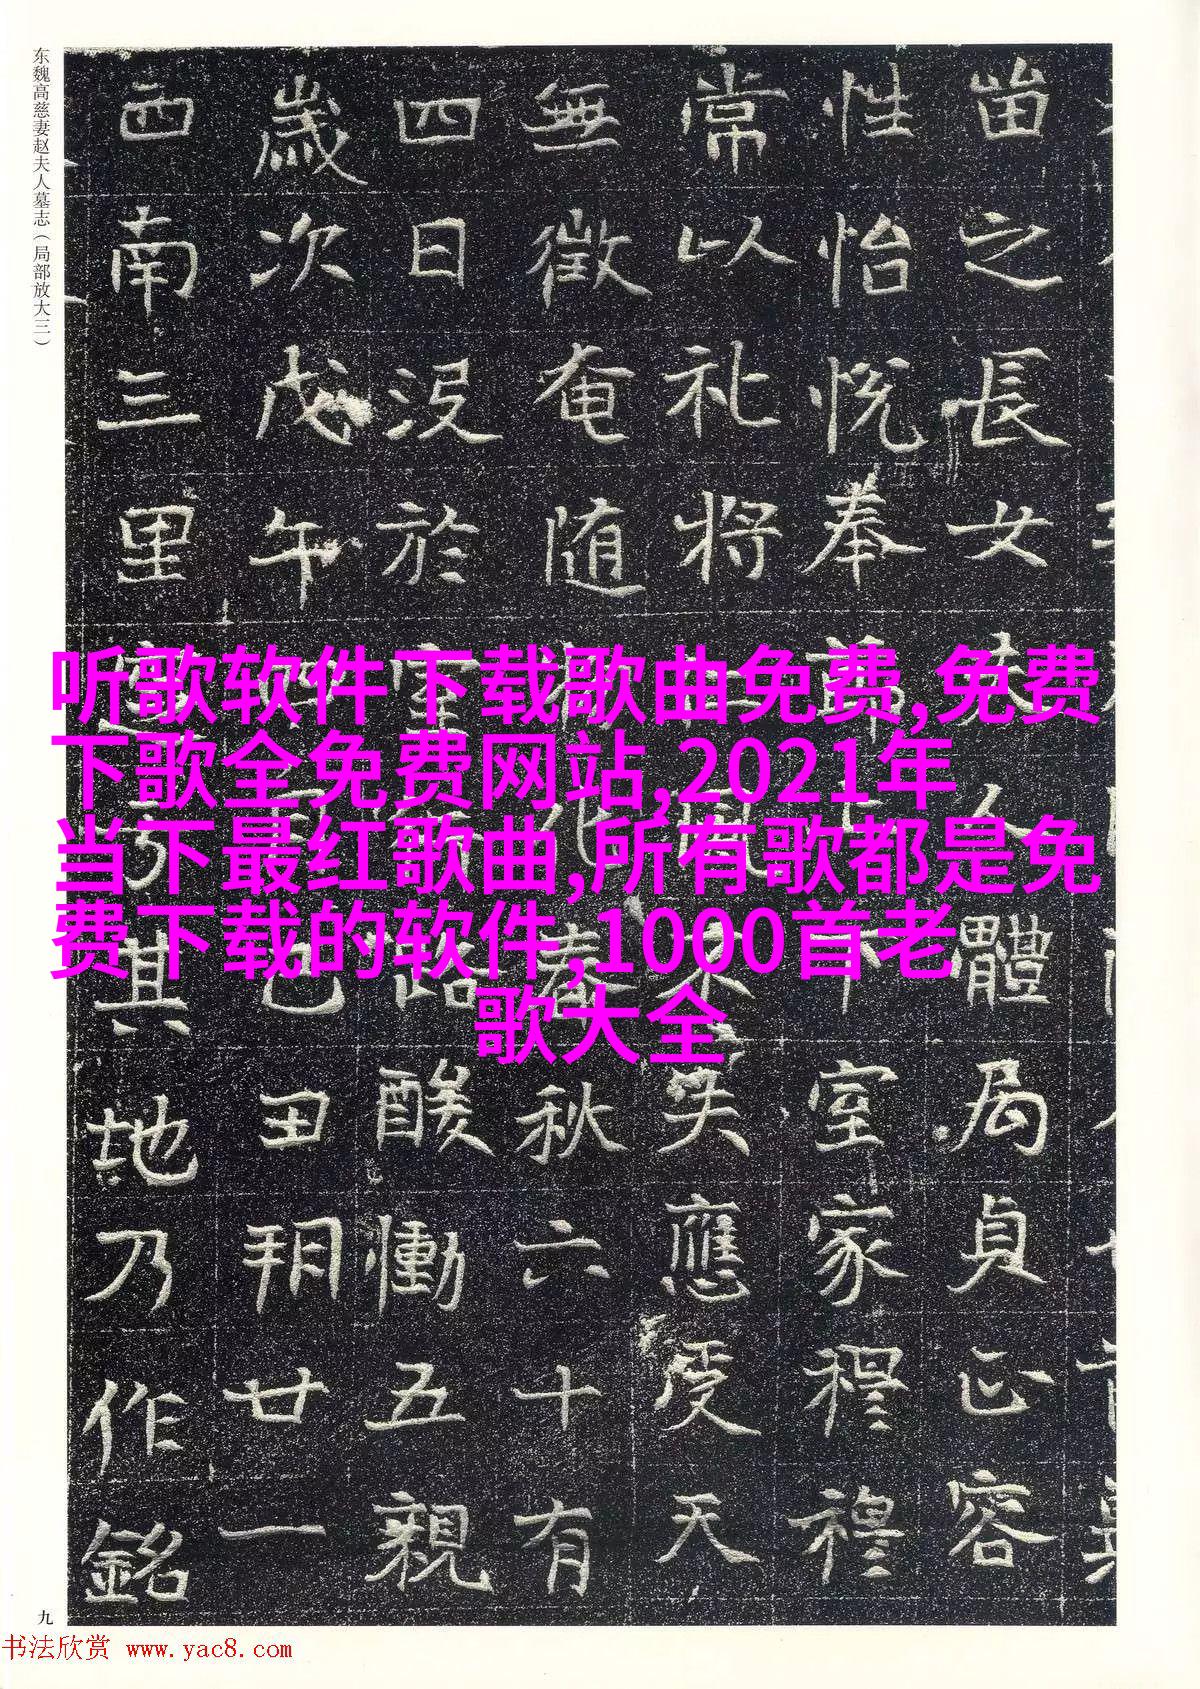 东魏高慈妻赵夫人墓志（局部放大三）
之長女夫人體局貞正容
性怡悦奉下室家穆穆
常以礼将風失應受天
無徵奄随化春秋六十有
四日没於室路酸慟五親
歲次戊午己丑朔廿一
西南三里其地乃作銘
听歌软件下载歌曲免费,免费
下歌全免费网站,2021年
当下最红歌曲,所有歌都是免
费下载的软件,1000首老
歌大全
九
书法欣赏 www.yac8.com